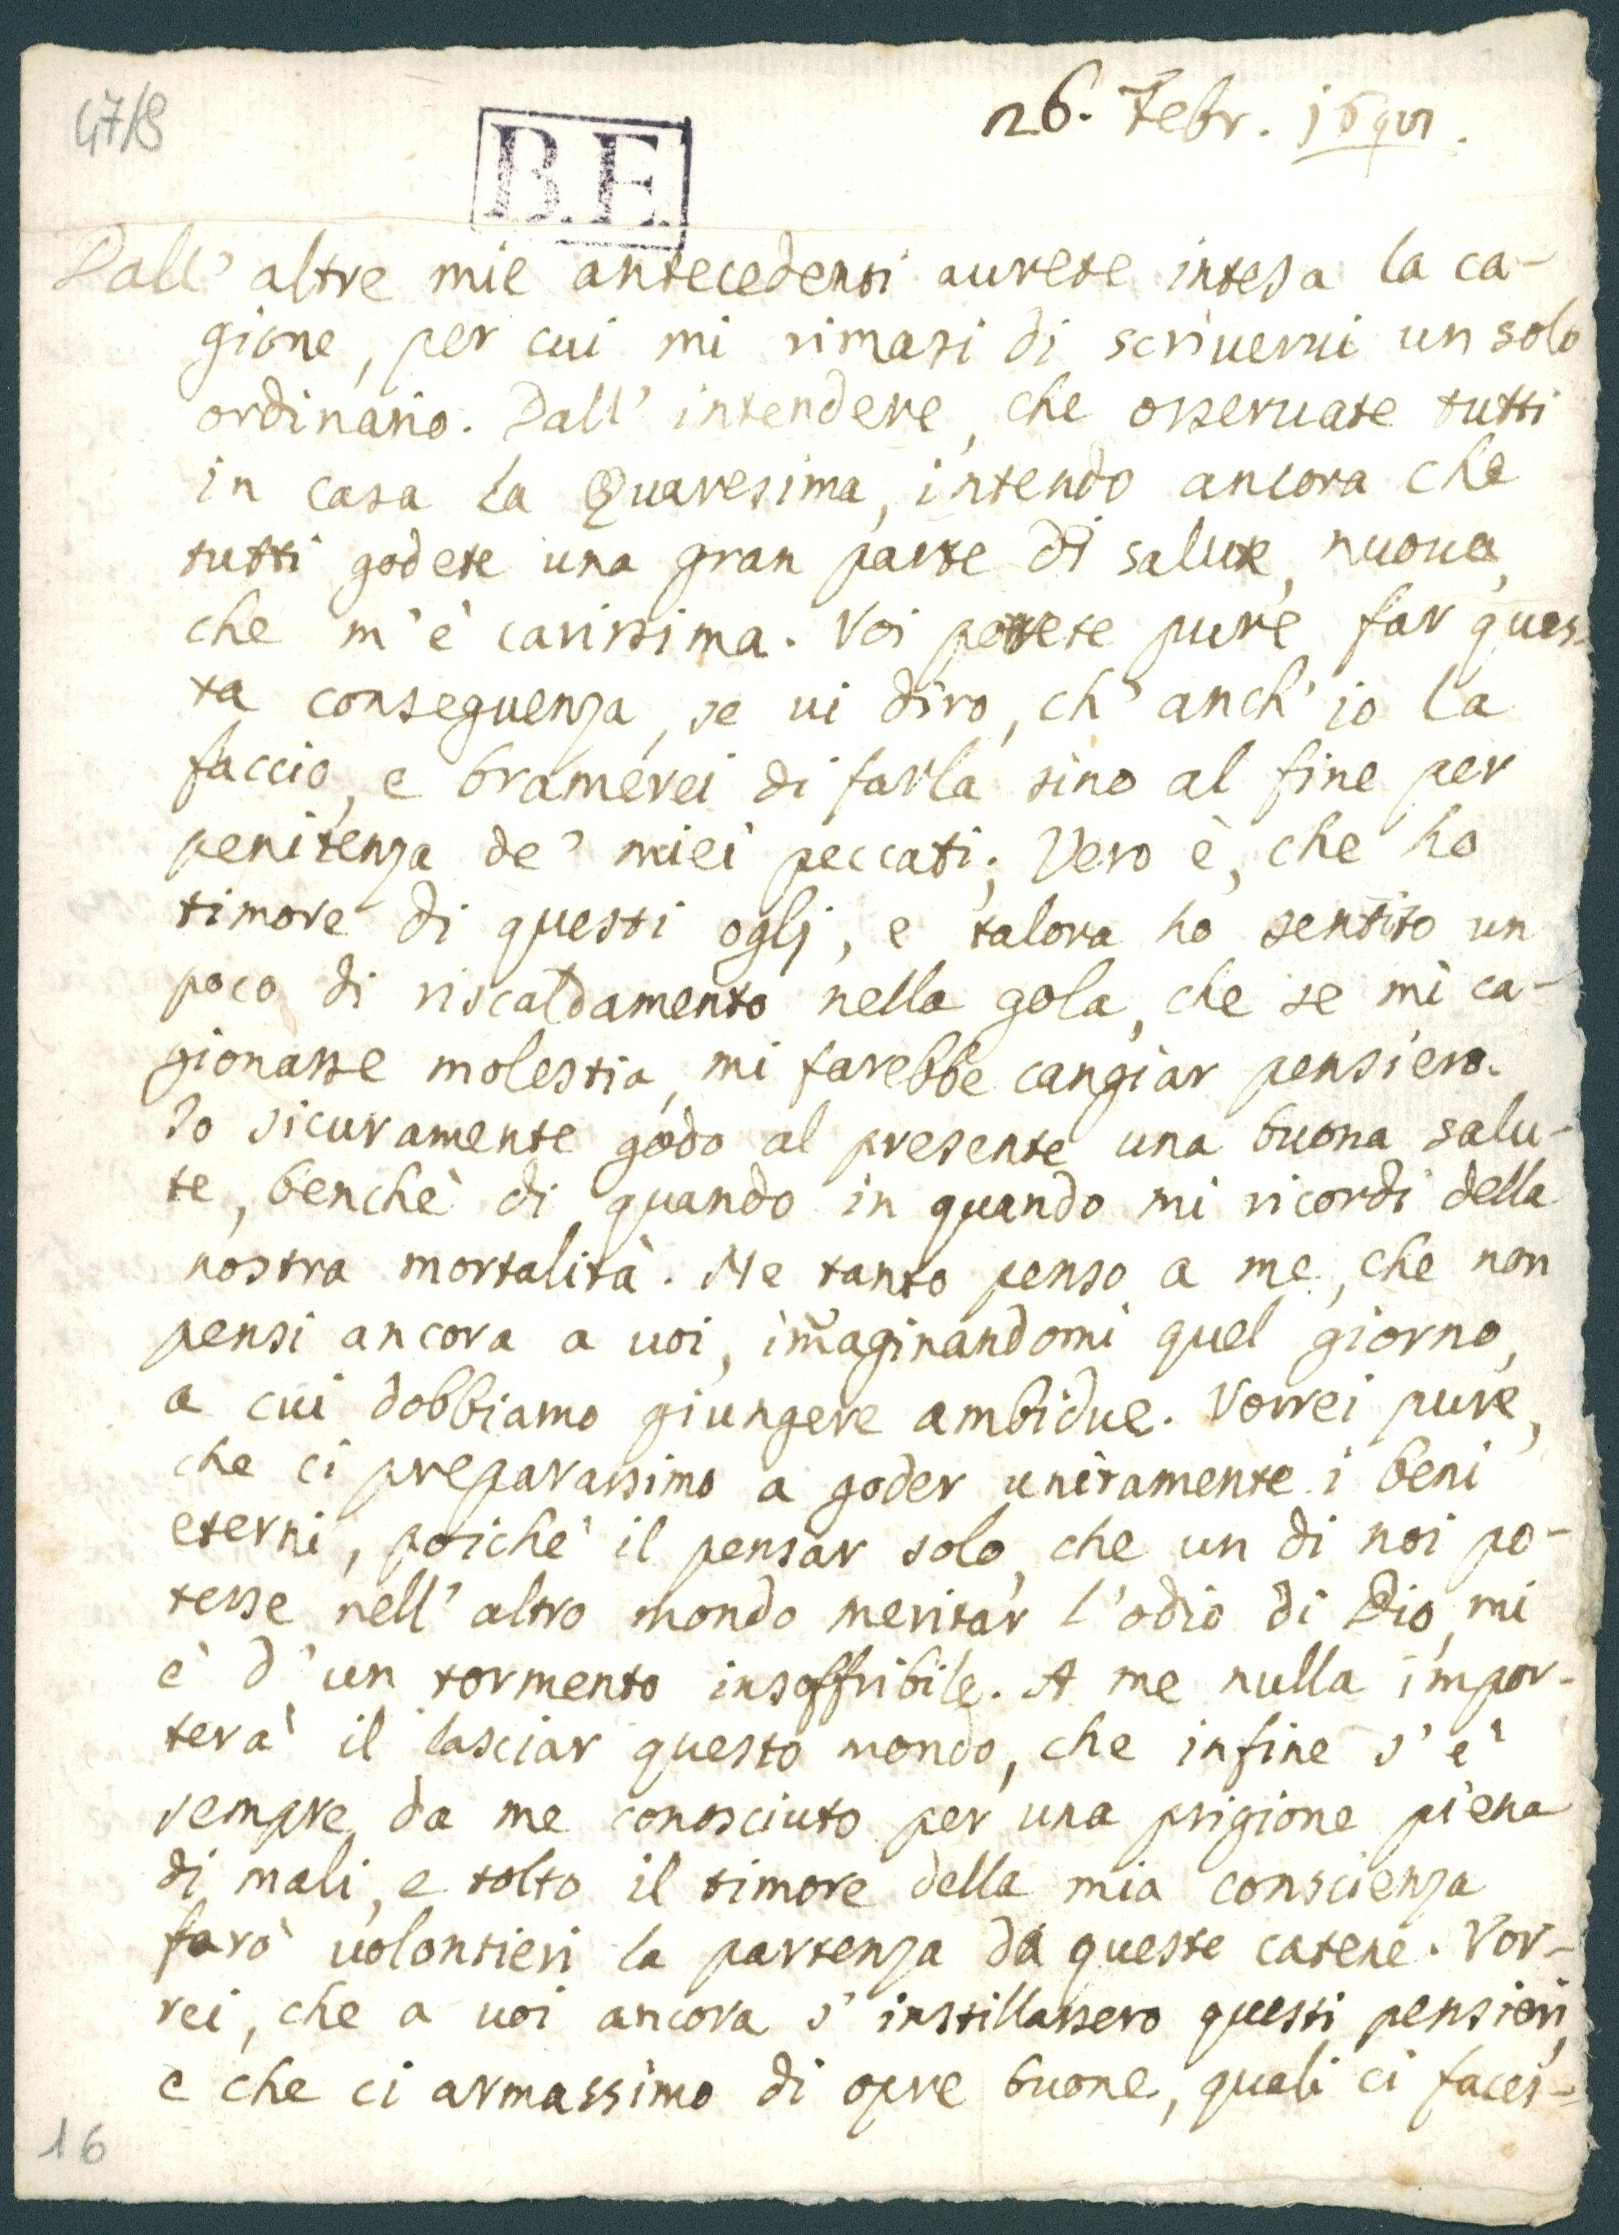 47/8
26. Febr. 1692.
B.E.
Dall' altre mie antecedenti aurete intesa la ca-
gione, per cui mi rimasi di scriuerui un solo
ordinario. Dall' intendere, che osseruate tutti
in casa la Quaresima, intendo ancora che
tutti godete una gran parte di salute, nuoua,
che m'è carissima. Voi potrete pure far ques-
ta conseguenza, se ui dirò, ch' anch' io la
faccio, e bramerei di farla sino al fine per
penitenza de' miei peccati; Vero è, che ho
timore di questi oglj, e talora ho sentito un
poco di riscaldamento nella gola, che se mi ca-
gionasse molestia, mi farebbe cangiar pensiero.
Io sicuramente godo al presente una buona salu-
te, benchè di quando in quando mi ricordi della
nostra mortalità. Ne tanto penso a me, che non
pensi ancora a uoi, im̃aginandomi quel giorno,
a cui dobbiamo giungere ambidue. Vorrei pure,
che ci preparassimo a goder unitamente i beni
eterni, poichè il pensar solo, che un di noi po-
tesse nell' altro mondo meritar l'odio di Dio, mi
è d'un tormento insoffribile. A me nulla impor-
terà il lasciar questo mondo, che infine s'è
sempre da me conosciuto per una prigione piena
di mali, e tolto il timore della mia conscienza
farò uolontieri la partenza da queste catene. Vor-
rei, che a uoi ancora s' instillassero questi pensieri,
e che ci armassimo di opre buone, quali ci faces-
16